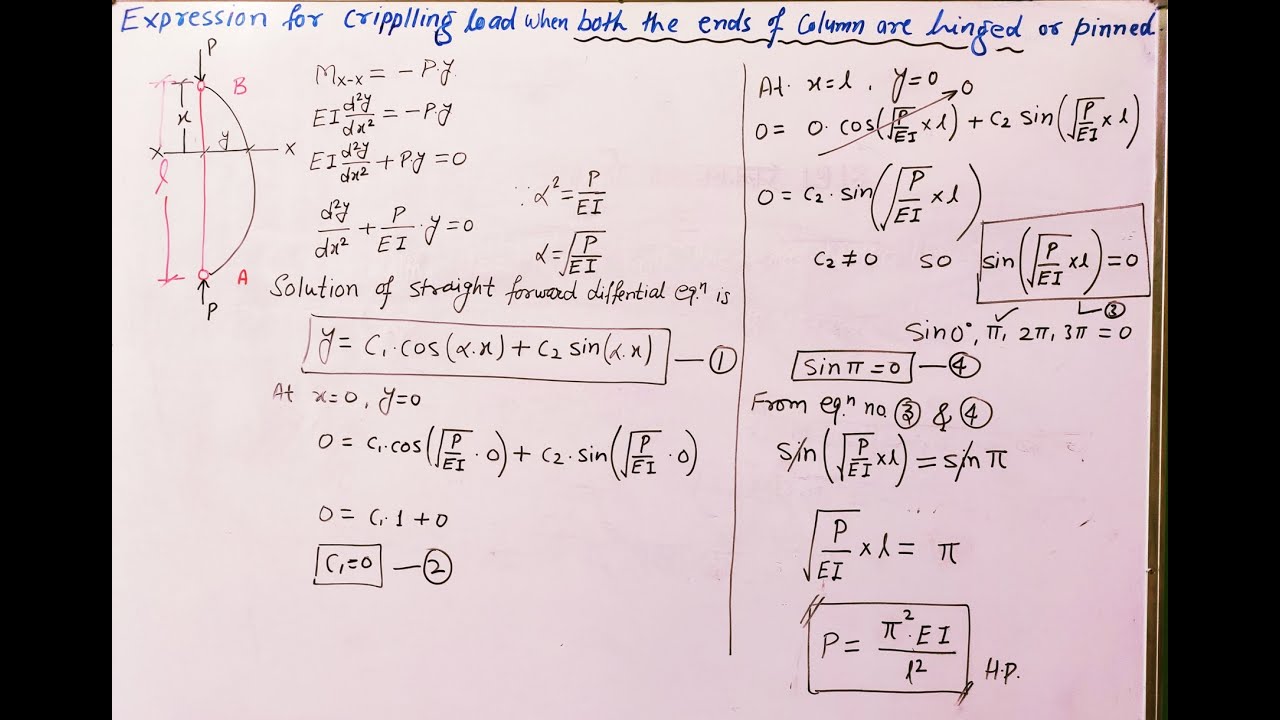 Expression for Cripplling load when both the ends of Column are hinged or pinned.
P
B
x
y
X X
l
A
P
M_{x-x} = -P.y
EI d²y/dx² = -P.y
EI d²y/dx² + P.y = 0
d²y/dx² + P/EI . y = 0
∵ α² = P/EI
α = √(P/EI)
Solution of straight forward diffential eq.ⁿ is
y = C₁.cos(α.x) + C₂ sin(α.x) — ①
At x=0, y=0
0 = C₁.cos(√(P/EI) . 0) + C₂.sin(√(P/EI) . 0)
0 = C₁.1 + 0
C₁=0 — ②
At x=l, y=0
0
0 = 0.cos(√(P/EI) × l) + C₂ sin(√(P/EI) × l)
0 = C₂.sin(√(P/EI) × l)
C₂ ≠ 0 so sin(√(P/EI) × l) = 0
③
Sin0°, π, 2π, 3π = 0
Sinπ = 0 — ④
From eq.ⁿ no. ③ & ④
Sin(√(P/EI) × l) = sinπ
√(P/EI) × l = π
P = π².EI/l²
H.P.